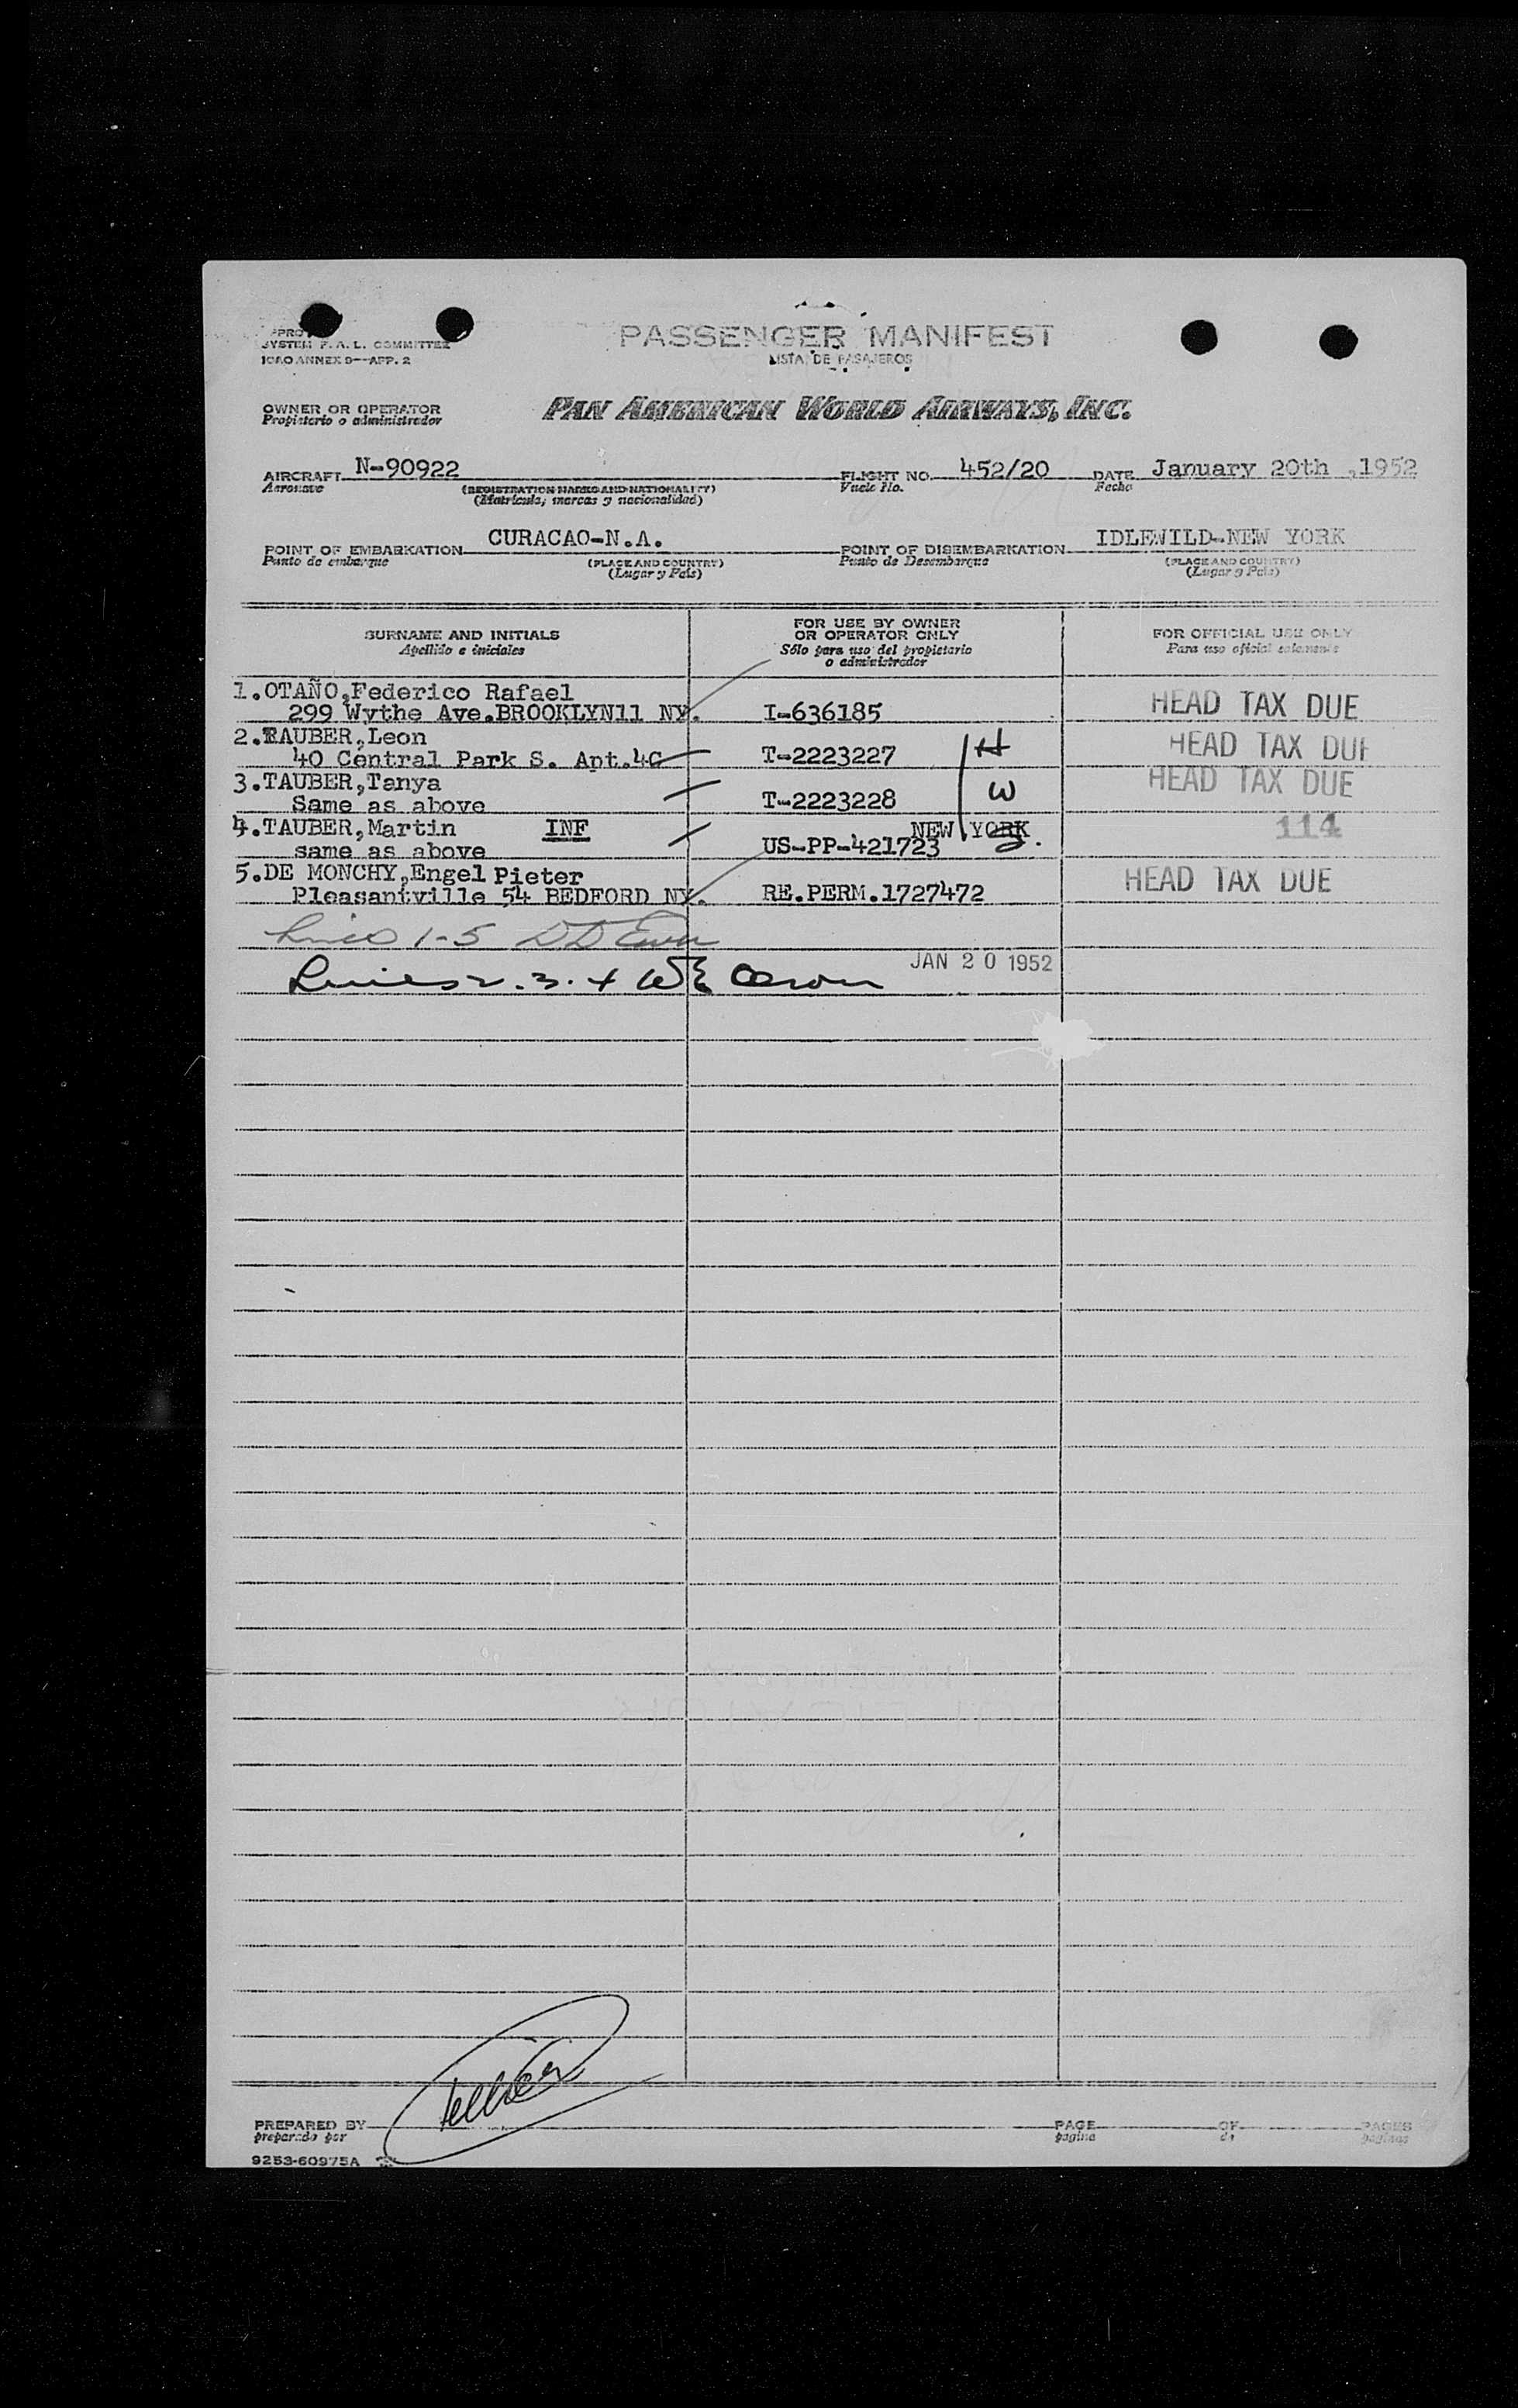 PASSENGER MANIFEST
SYSTEM F.A.L. COMMITTEE
LISTA DE PASAJEROS
ICAO ANNEX 9—APP. 2
OWNER OR OPERATOR
Propietario o administrador
PAN AMERICAN WORLD AIRWAYS, INC.
AIRCRAFT N-90922 FLIGHT NO. 452/20 DATE January 20th ,1952
Aeronave (REGISTRATION MARKS AND NATIONALITY) Vuelo No. Fecha
(Matrícula, marcas y nacionalidad)
POINT OF EMBARKATION CURACAO-N.A. POINT OF DISEMBARKATION IDLEWILD-NEW YORK
Punto de embarque (PLACE AND COUNTRY) Punto de Desembarque (PLACE AND COUNTRY)
(Lugar y País) (Lugar y País)
SURNAME AND INITIALS
Apellido e iniciales
FOR USE BY OWNER
OR OPERATOR ONLY
Sólo para uso del propietario
o administrador
FOR OFFICIAL USE ONLY
Para uso oficial solamente
1.OTAÑO,Federico Rafael
299 Wythe Ave.BROOKLYN11 NY. I-636185 HEAD TAX DUE
2.TAUBER,Leon
40 Central Park S. Apt.4C T-2223227 H HEAD TAX DUE
3.TAUBER,Tanya
Same as above T-2223228 W HEAD TAX DUE
4.TAUBER,Martin INF NEW YORK 114
same as above US-PP-421723
5.DE MONCHY,Engel Pieter
Pleasantville 54 BEDFORD NY. RE.PERM.1727472 HEAD TAX DUE
Lines 1-5
JAN 20 1952
Lines 2.3.4
PREPARED BY PAGE OF PAGES
preparado por página de páginas
9253-60975A